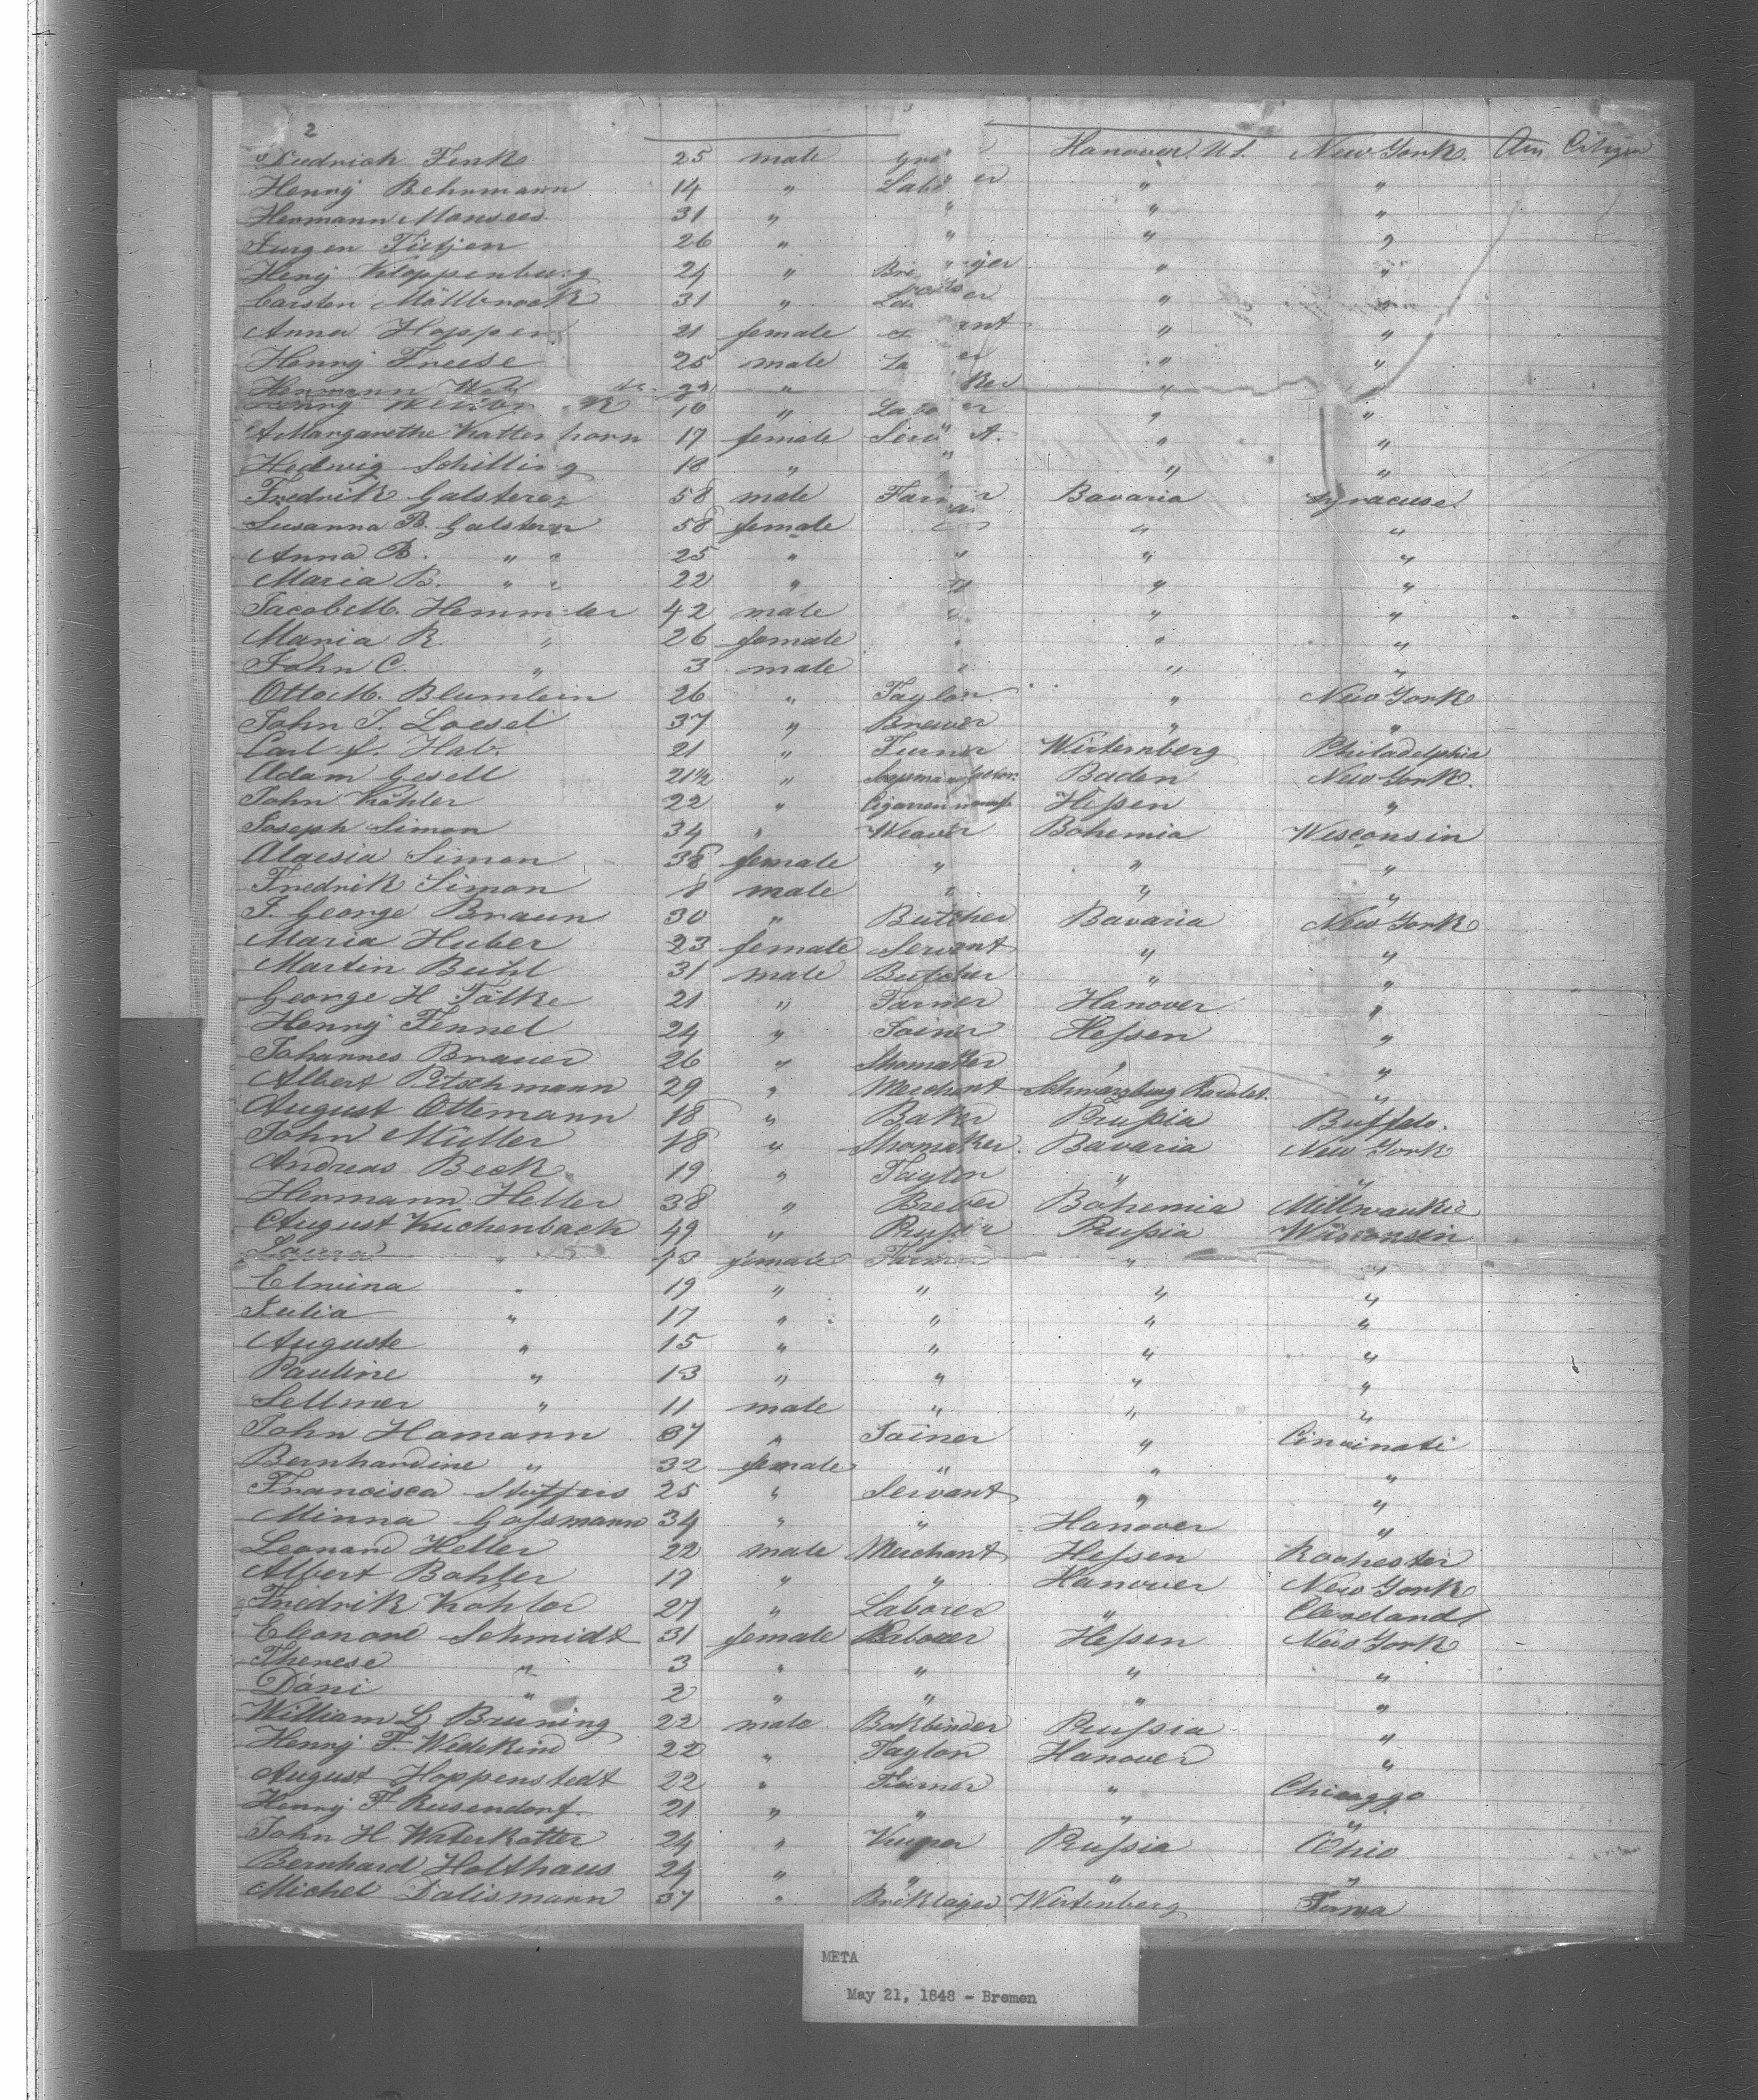 2
Diedrich Finke 25 male Hanover U.S. New York. Am Citizen
Henry Behrmann 14 " Laborer " "
Hermann Mansees 31 " " " "
Jurgen Tietjen 26 " " " "
Henry Kloppenburg 24 " " "
Carsten Möllbrock 31 " " "
Anna Hoppen 21 female " "
Henry Freese 25 male " "
Hermann 22 " "
Henry 16 " Laborer " "
A Margarethe Kattenhorn 17 female " "
Hedwig Schilling 18 " " " "
Fredrik Galsterer 58 male Farmer Bavaria Syracuse
Susanna B. Galsterer 58 female " "
Anna B. " " 25 " " " "
Maria B. " " 22 " " " "
Jacob M. Hemmeter 42 male " " "
Maria R. " 26 female " " "
John C. " 3 male " " "
Otto M. Blumlein 26 " Taylor " New York
John J. Loesel 37 " Brewer " "
Carl f. Hab. 21 " Turner Wirtemberg Philadelphia
Adam Gesell 21½ " Baden New York.
John Köhler 22 " Cigarren manuf. Hessen "
Joseph Simon 34 " Weaver Bohemia Wesconsin
Aloesia Simon 38 female " " "
Fredrik Simon 8 male " " "
J. George Braun 30 " Butcher Bavaria New York
Maria Huber 23 female Servant " "
Martin Buhl 31 male Butcher " "
George H Tölke 21 " Farmer Hanover "
Henry Fennel 24 " Joiner Hessen "
Johannes Brauer 26 " Shomaker " "
Albert Pitschmann 29 " Merchant Schwarzburg Rudolst. "
August Ottemann 18 " Baker Prussia Buffalo.
John Müller 18 " Shomaker. Bavaria New York
Andreas Beck 19 " Taylor " "
Hermann Heller 38 " Brewer Bohemia Millwaukie
August Kuchenback 49 " Prussia Wisconsin
Laura " 43 female Farmer " "
Elwina " 19 " " " "
Julia " 17 " " " "
Auguste " 15 " " " "
Pauline " 13 " " " "
Sellmer " 11 male " " "
John Hamann 37 " Joiner " Cincinati
Bernhardine " 32 female " " "
Francisca Stoffers 25 " Servant " "
Minna Gossmann 34 " " Hanover "
Leonard Heller 22 male Merchant Hessen Rochester
Albert Bohler 17 " " Hanover New York
Fredrik Kohler 27 " Laborer " Cleveland
Eleonore Schmidt 31 female Laborer Hessen New York
Therese " 3 " " " "
Dani " 2 " " " "
William L Bruning 22 male Bokbinder Prussia "
Henry F. Widekind 22 " Taylor Hanover "
August Hoppenstedt 22 " Farmer " Chicaggo
Henry F Rusendorf. 21 " " " "
John H Waterkotter 24 " Kuper Prussia Ohio
Bernhard Holthaus 24 " " " "
Michel Dalismann 37 " Briklayer Wirtenberg
META
May 21, 1848 - Bremen